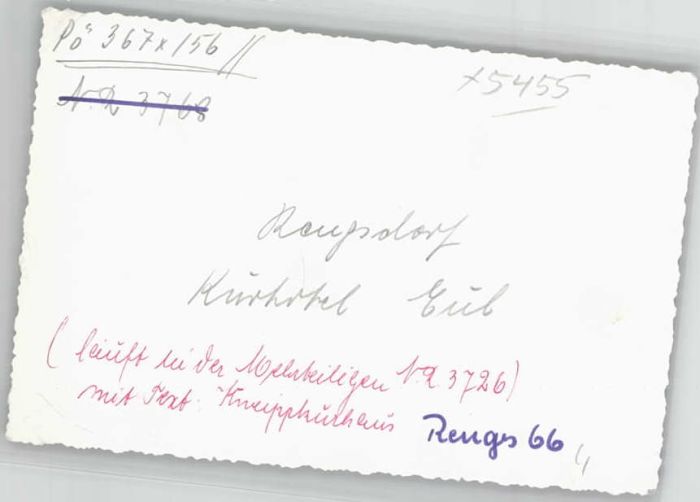 Pö 367 x 156 //
N.R 3768
x5455
Rengsdorf
Kurhotel Eul
(läuft in der Mehrteiligen N.R 3726)
mit Text: "Kneippkurhaus
Rengs 66